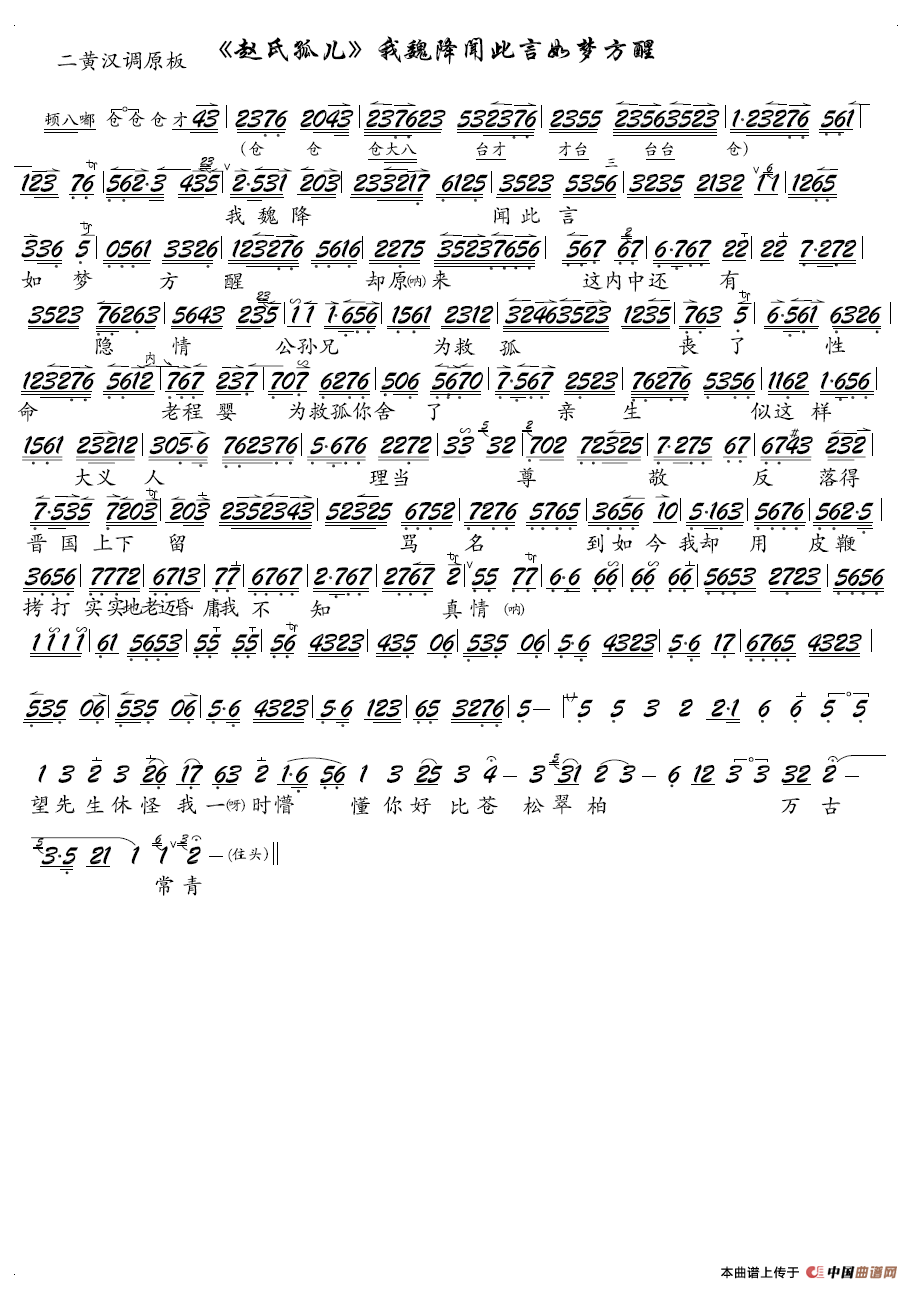 《赵氏孤儿》我魏降闻此言如梦方醒
二黄汉调原板
顿八嘟 仓 仓 仓 才 43 | 2376 2043 | 237623 532376 | 2355 23563523 | 1·23276 561 |
(仓 仓 仓大八 台才 才台 台台 仓)
123 76 | 562·3 435 | 2·531 203 | 233217 6125 | 3523 5356 | 3235 2132 11 | 1265
我 魏 降 闻 此 言
336 5 | 0561 3326 | 123276 5616 | 2275 35237656 | 567 67 | 6·767 22 | 22 7·272 |
如 梦 方 醒 却原(呐)来 这内中还 有
3523 76263 | 5643 235 | 11 1·656 | 1561 2312 | 32463523 1235 | 763 5 | 6·561 6326 |
隐 情 公孙兄 为救 孤 丧 了 性
123276 5612 | 767 237 | 707 6276 | 506 5670 | 7·567 2523 | 76276 5356 | 1162 1·656 |
内
命 老程 婴 为救孤你舍 了 亲 生 似这 样
1561 23212 | 305·6 762376 | 5·676 2272 | 33 32 | 702 72325 | 7·275 67 | 6743 232 |
大义 人 理当 尊 敬 反 落得
7·535 7203 | 203 2352343 | 52325 6752 | 7276 5765 | 3656 10 | 5·163 | 5676 | 562·5 |
晋 国 上下 留 骂 名 到 如 今 我却 用 皮 鞭
3656 | 7772 | 6713 | 77 | 6767 | 2·767 | 2767 2 | 55 77 | 6·6 66 | 66 66 | 5653 2723 | 5656
拷 打 实 实地老迈昏 庸我 不 知 真 情 (呐)
1111 | 61 5653 | 55 55 | 56 4323 | 435 06 | 535 06 | 5·6 4323 | 5·6 17 | 6765 4323 |
535 06 | 535 06 | 5·6 4323 | 5·6 123 | 65 3276 | 5— | 艹 5 5 3 2 2·1 6 6 5 5
1 3 2 3 26 17 63 2 1·6 56 1 3 25 3 4— 3 31 2 3— 6 12 3 3 32 2—
望先 生 休 怪 我 一(呀)时懵 懂 你 好 比 苍 松 翠 柏 万 古
3·5 21 1 1 2 —(住头)‖
常 青
本曲谱上传于 中国曲谱网